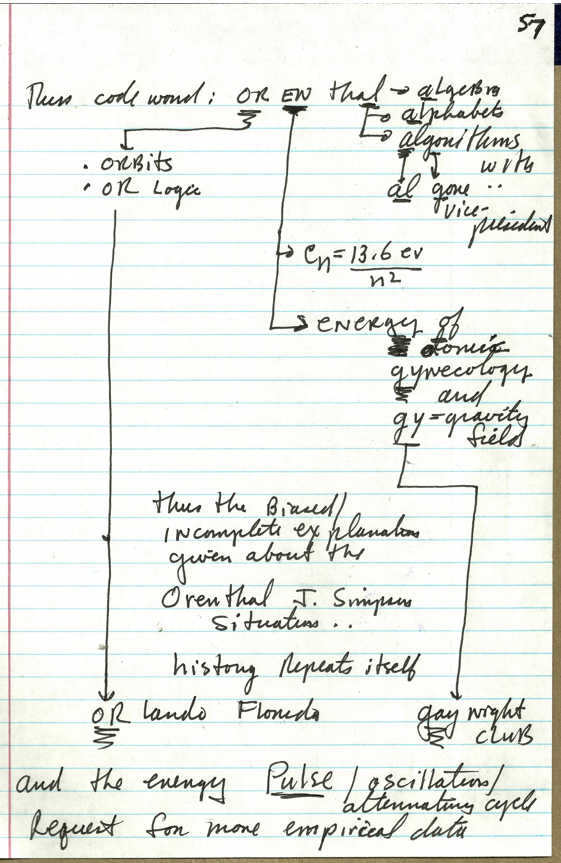 57
Thus code word: OR EN thal → algebra
alphabets
algorithms
with
al gore ..
vice-
president
• ORBits
• OR Logic
En = 13.6 ev
n2
energy of
atomic
gynecology
and
gy = gravity
field
thus the Biased/
incomplete explanation
given about the
Orenthal J. Simpson
Situation ..
history Repeats itself
OR lando Florida
gay night
CLUB
and the energy Pulse / oscillation/
alternating cycle
Request for more empirical data